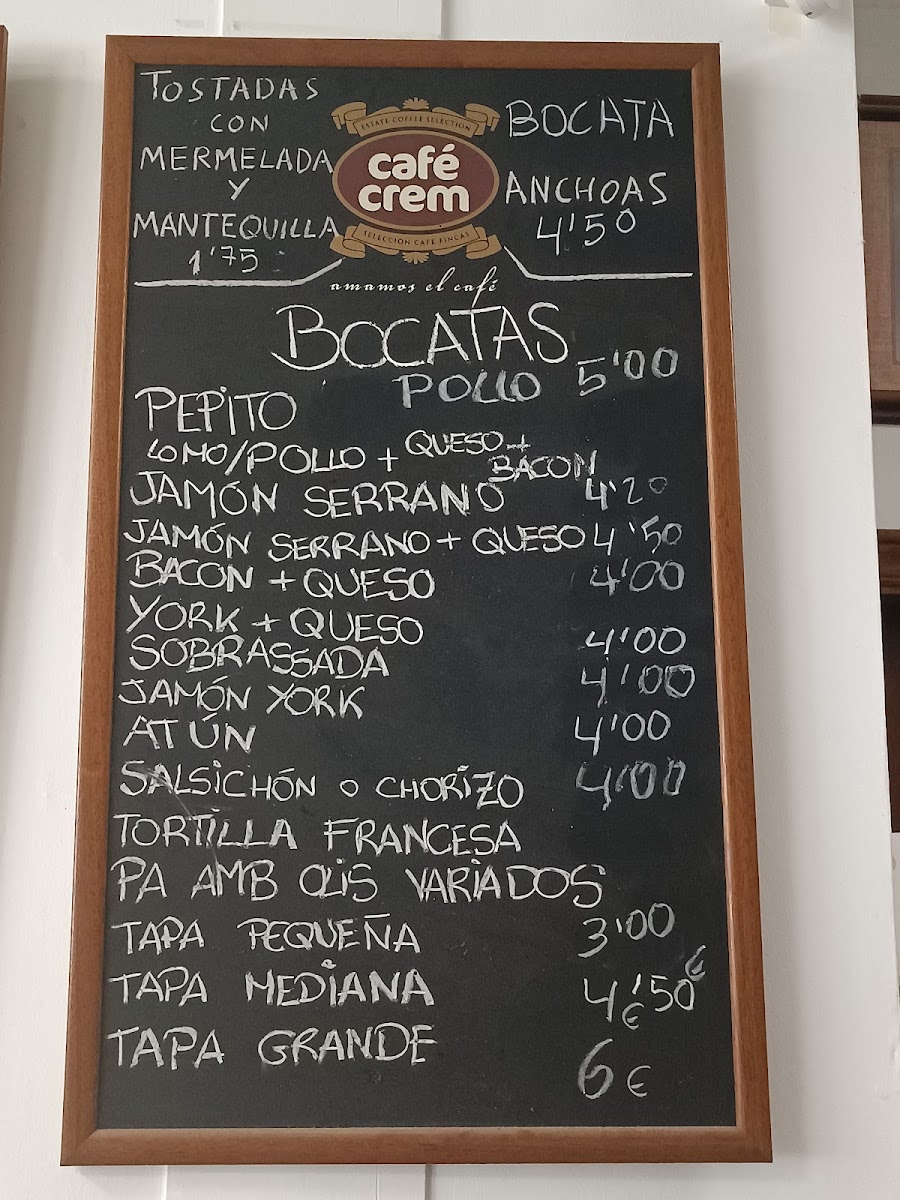 TOSTADAS
CON
MERMELADA
Y
MANTEQUILLA
1'75
ESTATE COFFEE SELECTION
café
crem
SELECCIÓN CAFÉ FINCAS
amamos el café
BOCATA
ANCHOAS
4'50
BOCATAS
PEPITO POLLO 5'00
LOMO/POLLO + QUESO + BACON
JAMÓN SERRANO 4'20
JAMÓN SERRANO + QUESO 4'50
BACON + QUESO 4'00
YORK + QUESO 4'00
SOBRASSADA 4'00
JAMÓN YORK 4'00
ATÚN 4'00
SALSICHÓN O CHORIZO
TORTILLA FRANCESA
PA AMB OLIS VARIADOS
TAPA PEQUEÑA 3'00 €
TAPA MEDIANA 4'50 €
TAPA GRANDE 6 €